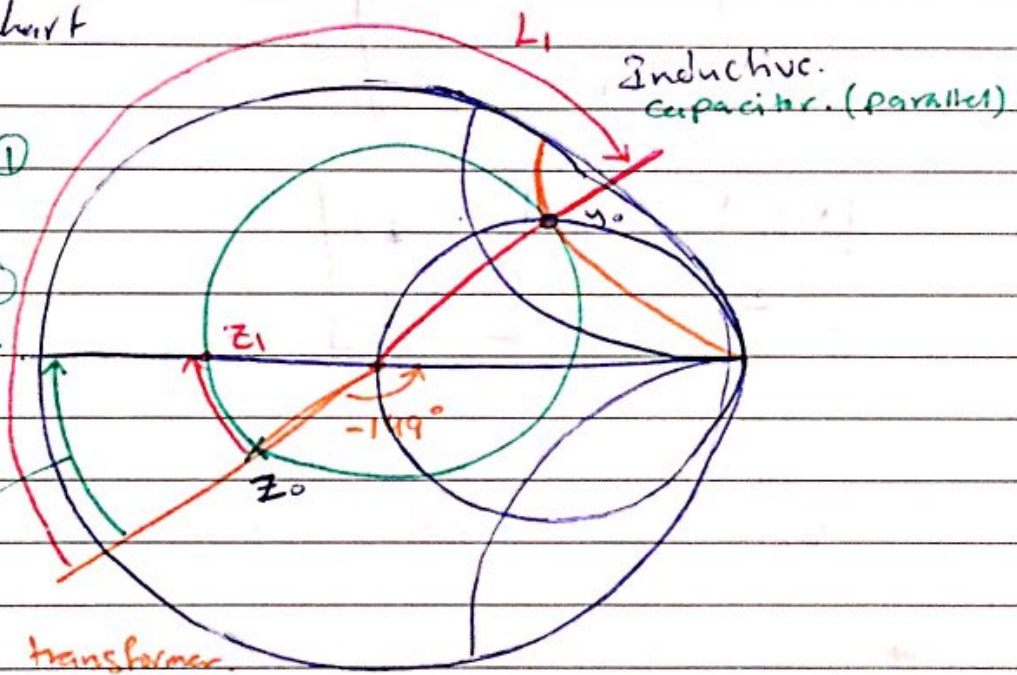 hart
L1
Inductive.
capacitor. (parallel)
1
y0
Z1
Z0
transformer.